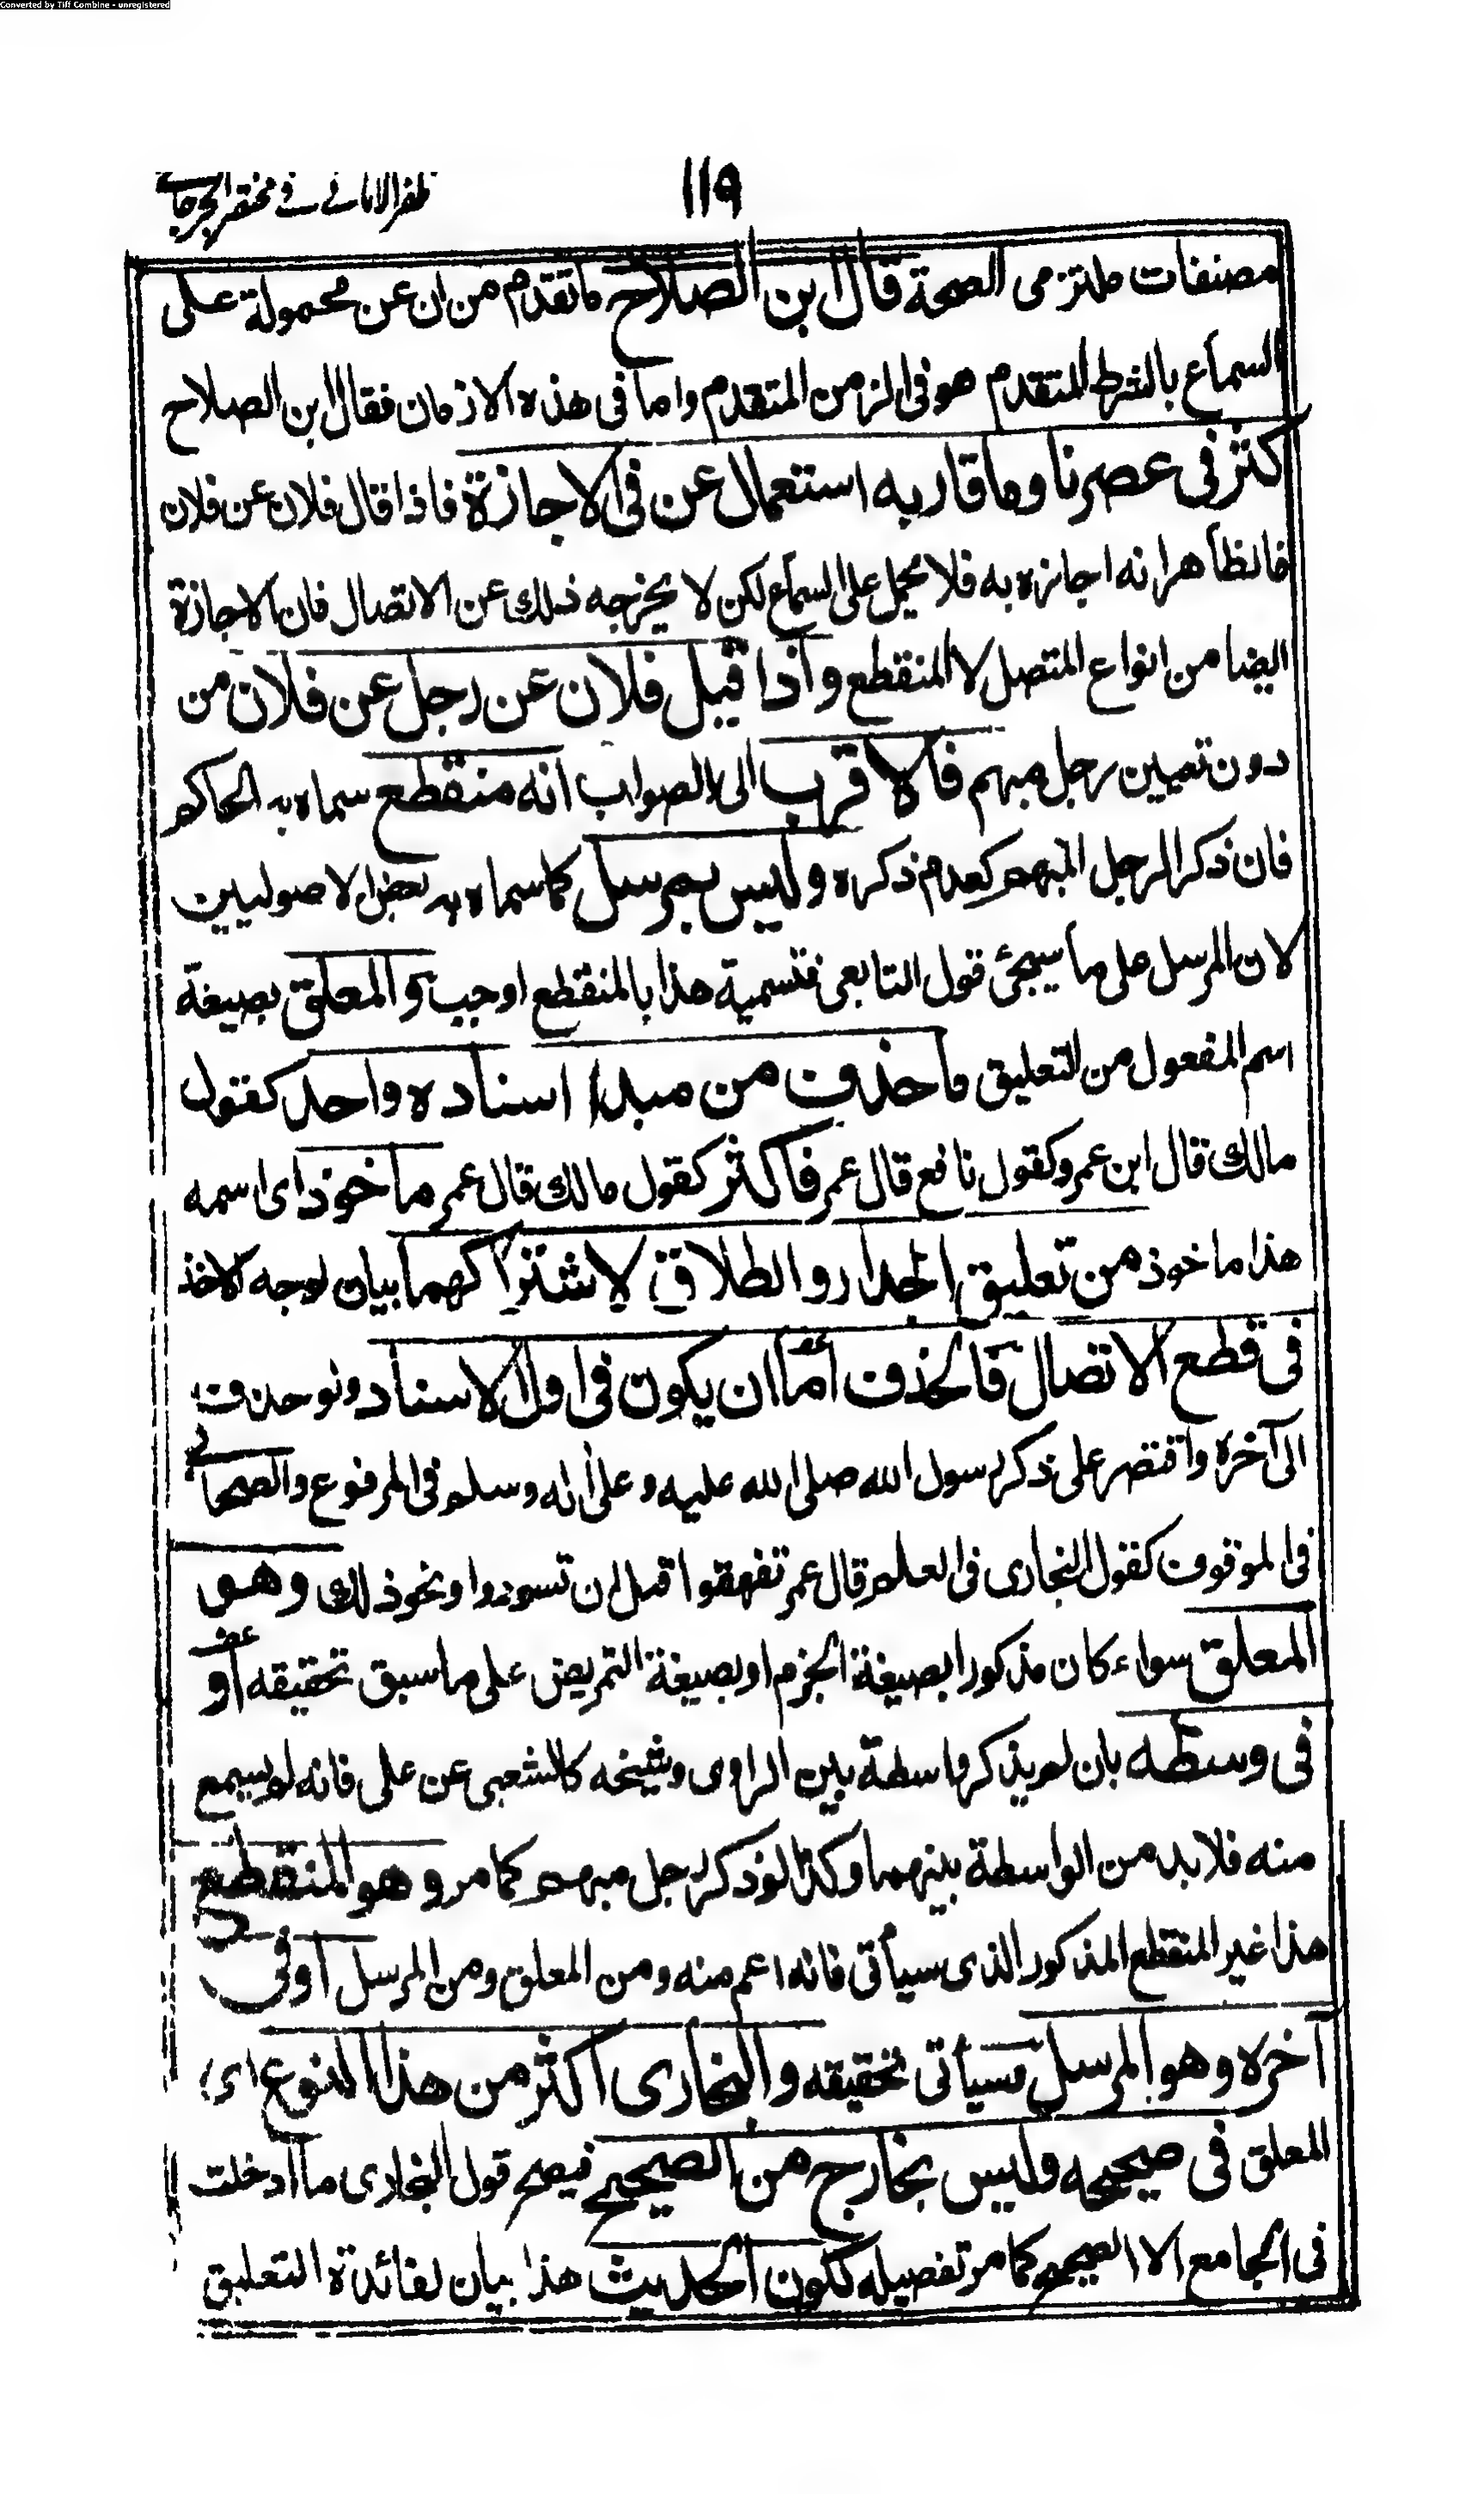 Converted by Tiff Combine - unregistered
ظفر الامانے فے مختصر الجرجانے
١١٩
مصنفات ملتزمی الصحة قال ابن الصلاح ماتقدم من ان عن محمولة علی
السماع بالشرط المتقدم هو فی الزمن المتقدم واما فی هذه الازمان فقال ابن الصلاح
کثر فی عصرنا وما قاربه استعمال عن فی الاجازة فاذا قال فلان عن فلان
فالظاهر انه اجازه به فلا یحمل علی السماع لکن لا یخرجه ذلك عن الاتصال فان الاجازة
ایضا من انواع المتصل لا المنقطع واذا قیل فلان عن رجل عن فلان من
دون تعیین رجل مبهم فالاقرب الی الصواب انه منقطع سماه به الحاکم
فان ذکر الرجل المبهم کعدم ذکره ولیس بمرسل کما سماه به بعض الاصولیین
لان المرسل علی ما سیجئ قول التابعی فتسمیة هذا بالمنقطع اوجب والمعلق بصیغة
اسم المفعول من التعلیق ماحذف من مبدا اسناده واحد کقول
مالك قال ابن عمر وکقول نافع قال عمر فاکثر کقول مالك قال عمر ماخوذ ای اسمه
هذا ماخوذ من تعلیق الجدار والطلاق لاشتراکهما بیان لوجه الاخذ
فی قطع الاتصال فالحذف اما ان یکون فی اول الاسناد ولو حذف
الی آخره واقتصر علی ذکر رسول الله صلی الله علیه وعلی اله وسلم فی المرفوع والصحابے
فی الموقوف کقول البخاری فی العلم قال عمر تفقهوا قبل ان تسودوا ونحو ذلك وهو
المعلق سواء کان مذکورا بصیغة الجزم او بصیغة التمریض علی ما سبق تحقیقه او
فی وسطه بان لم یذکر واسطة بین الراوی وشیخه کالشعبی عن علی فانه لم یسمع
منه فلا بد من الواسطة بینهما وکذا لو ذکر رجل مبهم کما مر وهو المنقطع
هذا غیر المنقطع المذکور الذی سیأتی فانه اعم منه ومن المعلق ومن المرسل او فی
آخره وهو المرسل سیأتی تحقیقه والبخاری اکثر من هذا النوع ای
المعلق فی صحیحه ولیس بخارج من الصحیح فیصح قول البخاری ما ادخلت
فی الجامع الا الصحیح کما مر تفصیله ککون الحدیث هذا بیان لفائدة التعلیق